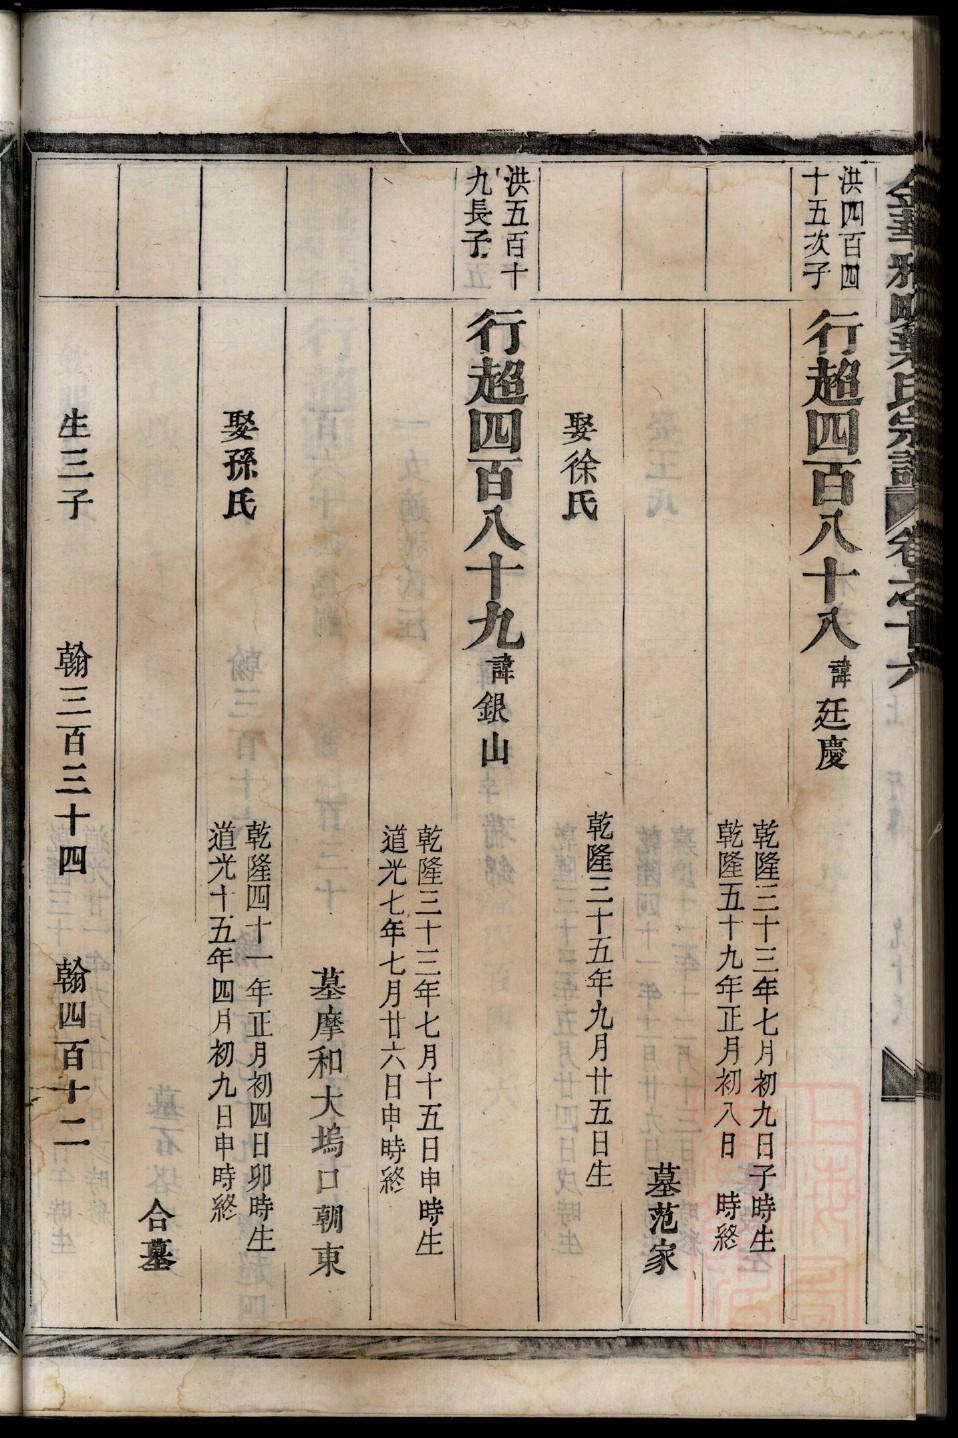 金華雅畈葉氏宗譜 卷之十六
洪四百四
十五次子
行超四百八十八 諱廷慶
乾隆三十三年七月初九日子時生
乾隆五十九年正月初八日 時終
墓范家
娶徐氏 乾隆三十五年九月廿五日生
洪五百十
九長子
行超四百八十九 諱銀山
乾隆三十三年七月十五日申時生
道光七年七月廿六日申時終
墓摩和大塢口朝東
娶孫氏
乾隆四十一年正月初四日卯時生
道光十五年四月初九日申時終
合墓
生三子 翰三百三十四 翰四百十二